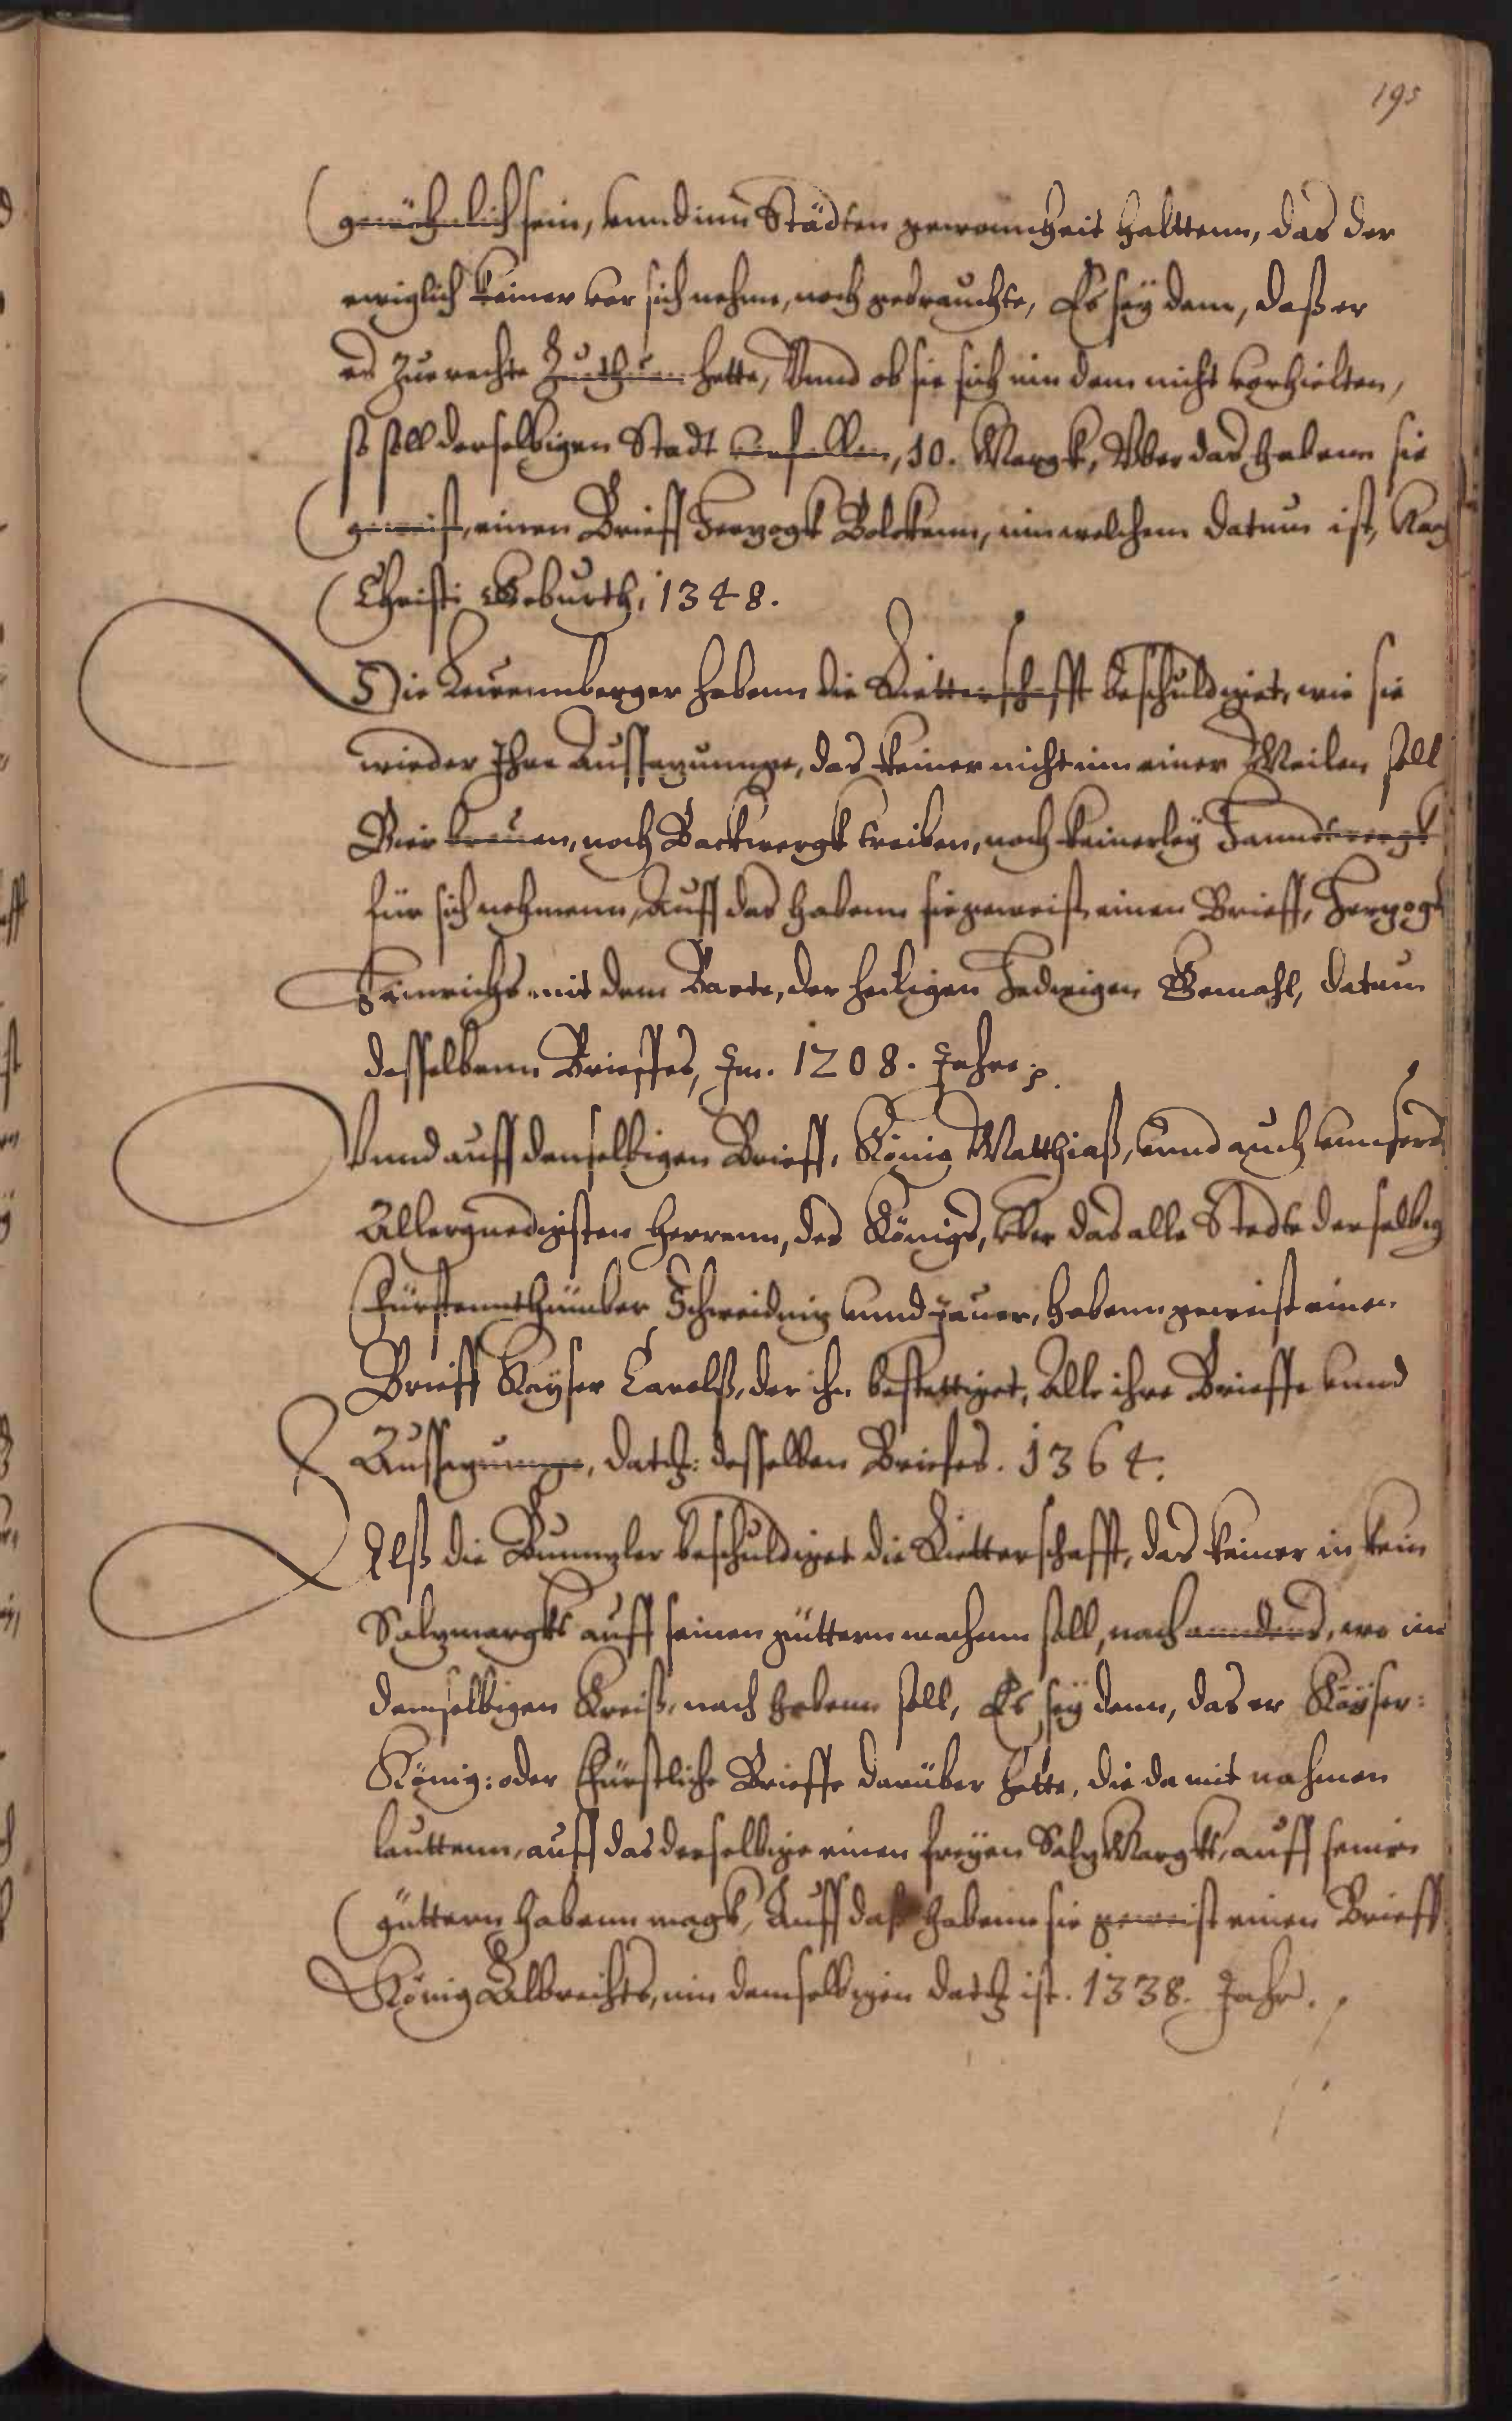 195
gewöhnlich sein, vnnd inn Städten gewonnheit halttenn, das der
ewiglich keiner vor sich nehme, noch gebrauchte, Es sey dann, daß er
es zue rechte Zuthuen hette, Vnnd ob sie sich inn dem nicht vorhielten,
so soll derselbigen Stadt verfallen, 10. Margk, Vber das, habenn sie
geweist, einen Brieff Herzogk Bolckenn, inn welchem datum ist, Nach
Christi Geburth, 1348.
Die Lewennberger habenn die Ritterschafft beschuldiget, wie sie
wieder Ihre Aussazunnge, das keiner nicht inn einer Meilen soll
Bier brauen, noch Backwergk treiben, noch keinerley Hanndtwergk
für sich nehmenn, Auff das habenn sie geweist einen Brieff, Herzogk
Heinrichs mit dem Barte, der heiligen Hedwigen Gemahl, datum
desselbenn Brieffes, Im. 1208. Jahre p.
Vnnd auff denselbigen Brieff, König Matthiaß, vnnd auch vnnsers
Allergnedigsten Herrenn, des Königs, Vber das alle Stedte derselbig
Fürstennthümber Schweidniz vnnd Jauer, habenn geweist einen
Brieff Kayser Carolß, der ihn bestettiget, Alle ihre Brieffe vnnd
Aussazunnge, datum: desselben Briefes. 1364.
Alß die Bunnzler beschuldiget die Ritterschafft, das keiner in kein
Salzmargkt auff seinen güttern machenn soll, noch annders, wo inn
demselbigen Kreiß, noch habenn soll, Es sey denn, das er Kayser:
König: oder Fürstliche Brieffe darüber hette, die da mit nahmen
lauttenn, auff das derselbige einen freyen Salz Margkt, auff seinen
güttern habenn magk, Auff das habenn sie geweist einen Brieff
König Albrechts, inn demselbigen datum ist. 1338. Jahr.